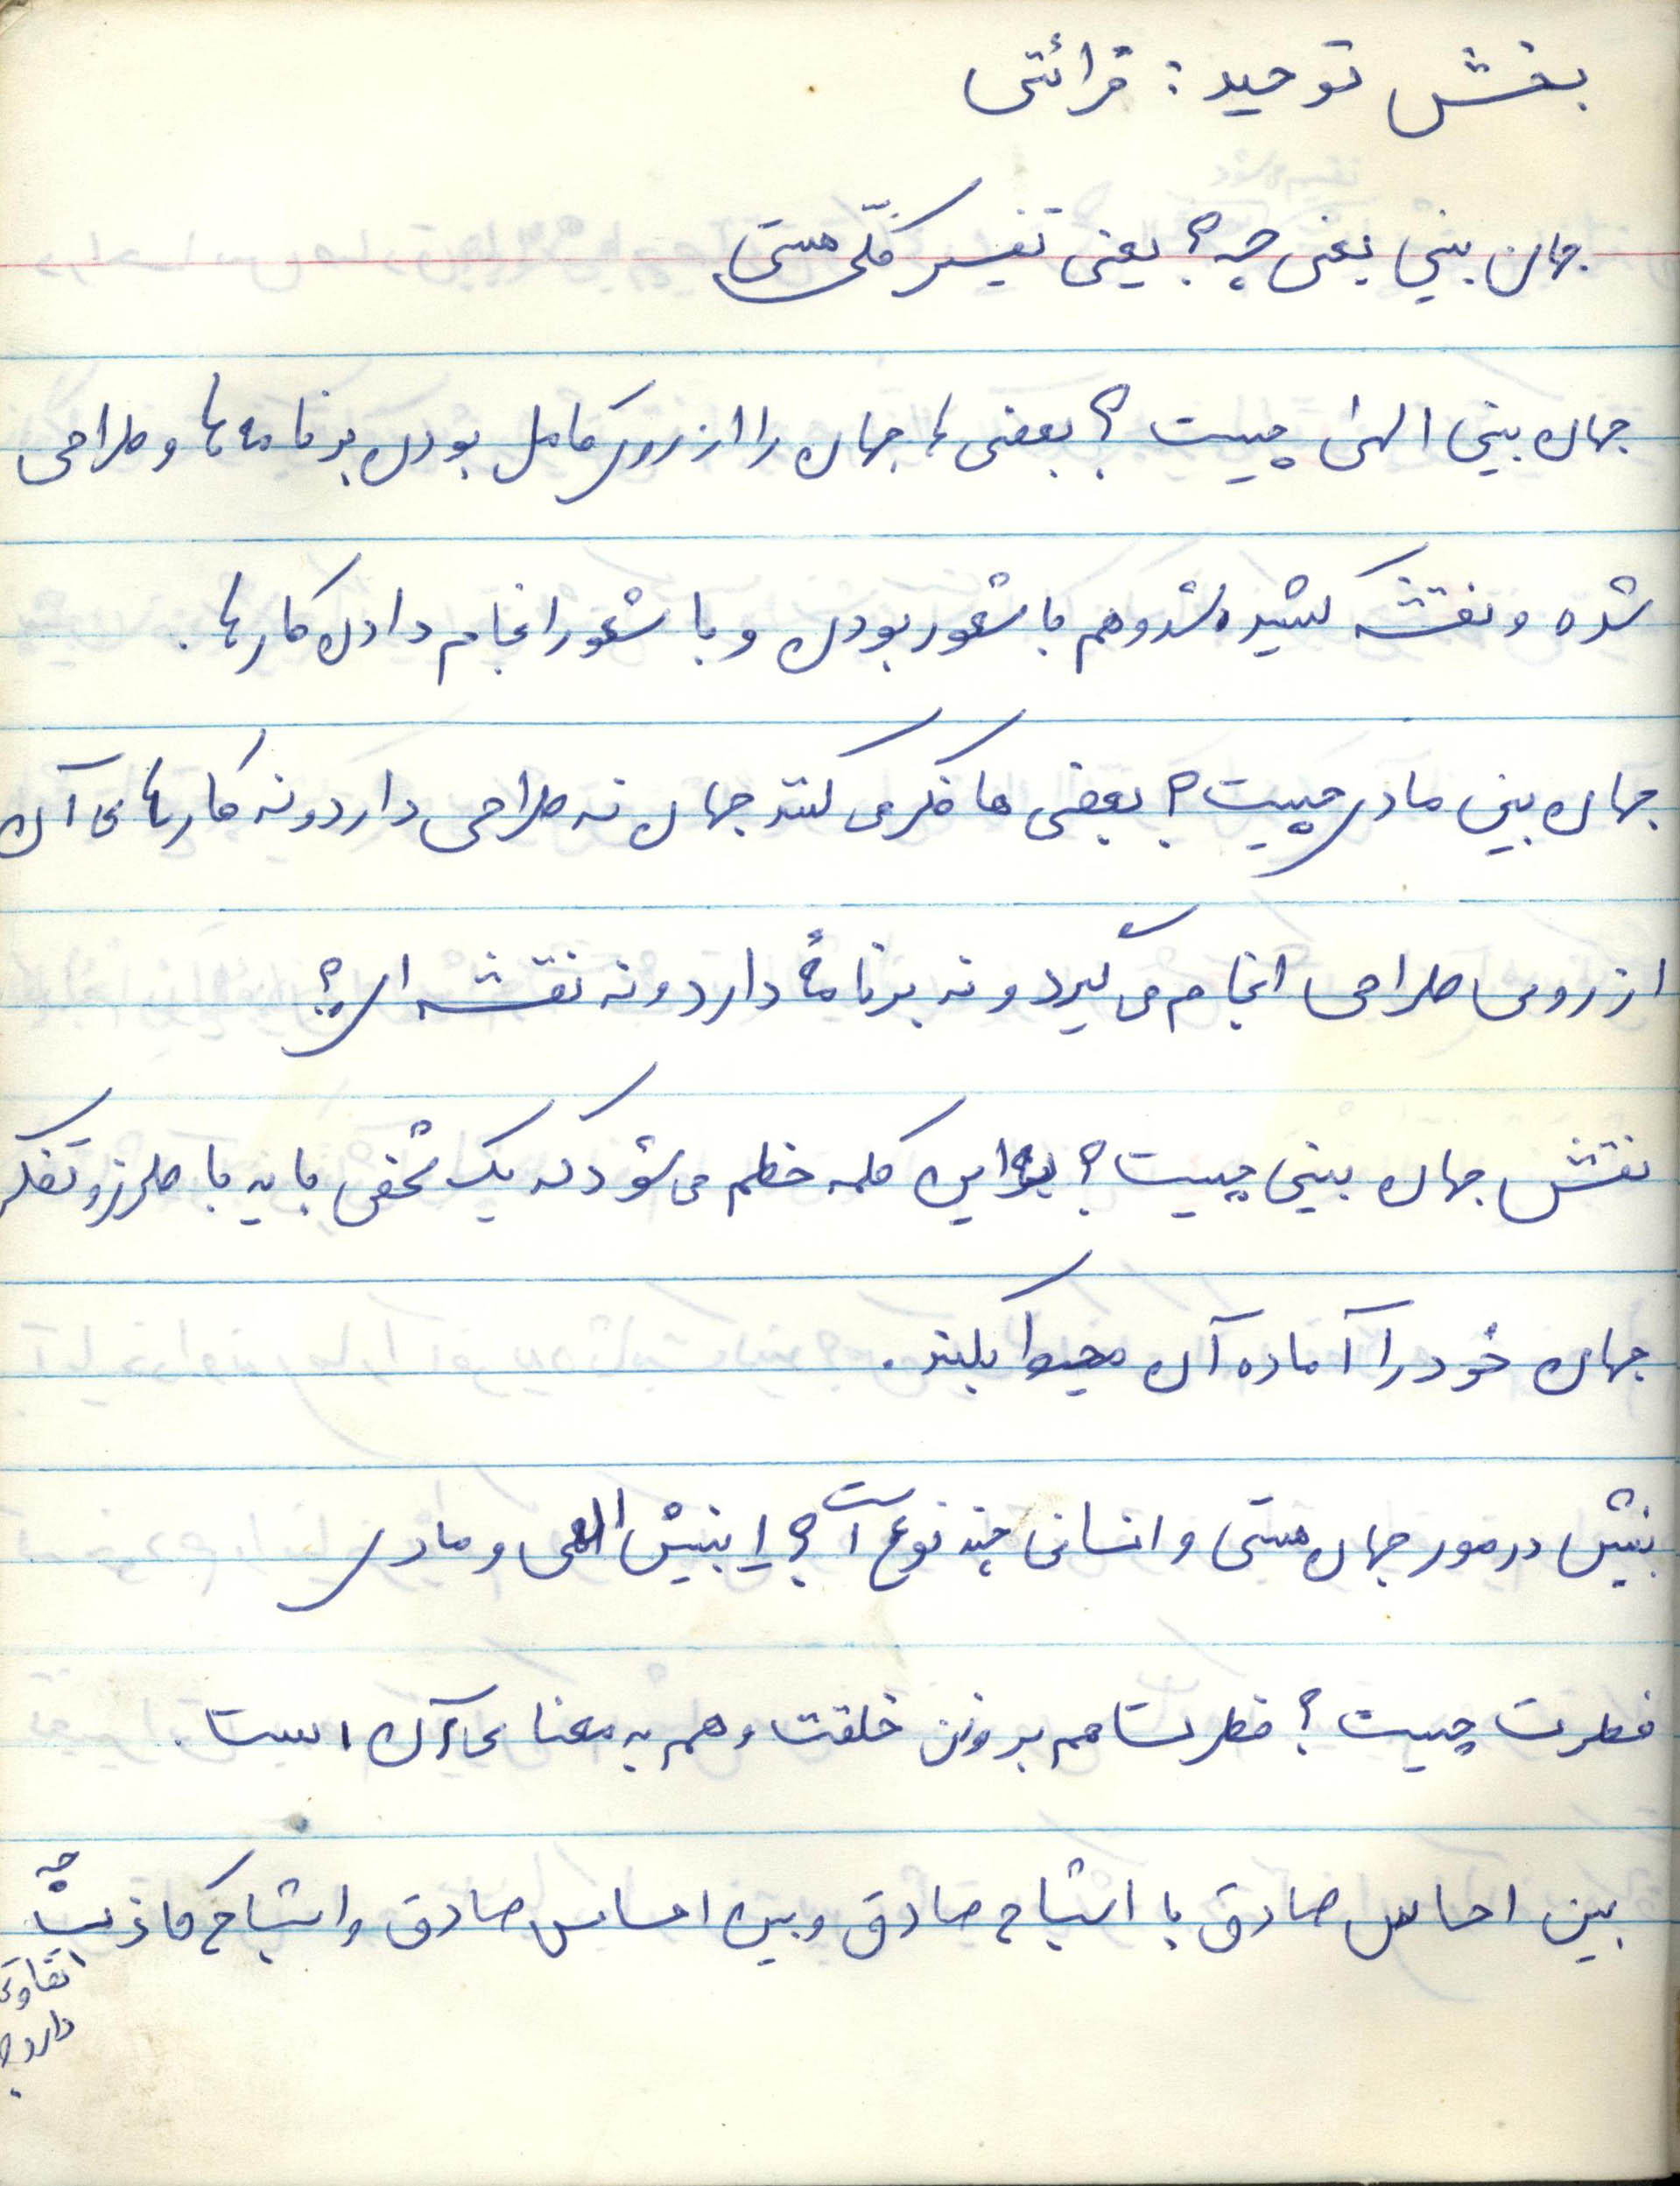 بخش توحید : قرائتی
جهان بینی یعنی چه؟ یعنی تفسیر کلّی هستی
جهان بینی الهی چیست؟ بعضی ها جهان را از روی کامل بودن برنامه ها و طراحی
شده و نقشه کشیده شد و هم با شعور بودن و با شعور انجام دادن کارها.
جهان بینی مادی چیست؟ بعضی ها فکر می کنند جهان نه طراحی دارد و نه کارهای آن
از روی طراحی انجام می گیرد و نه برنامهٔ دارد و نه نقشه ای؟
نقش جهان بینی چیست؟ این کلمه ختم می شود که یک شخص باید با طرز و تفکر
جهان خود را آماده آن بکند.
بینش در مورد جهان هستی و انسانی چند نوع است؟ بینش الهی و مادی
فطرت چیست؟ فطرت هم بر وزن خلقت و هم به معنای آن است.
بین احساس صادق با اشباع صادق و بین احساس صادق و اشباع کاذب چه
تفاوتی
دارد؟